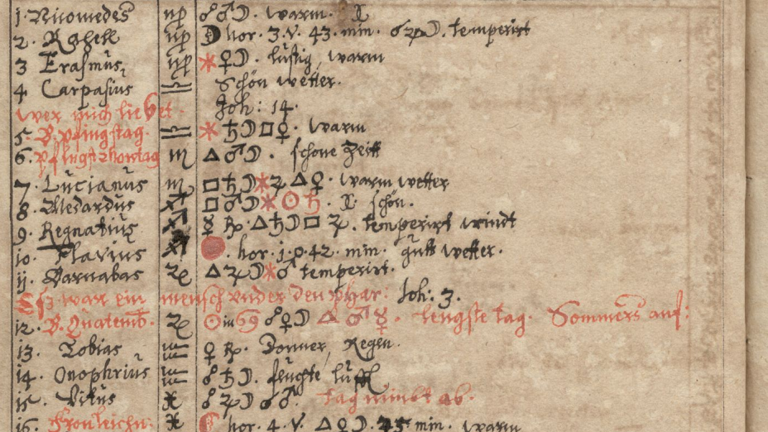 1. Nicomedes ♍ ☍♂☽. warm.
2. ♍ ☽ hor. 3. V. 43. min. ☌♃☽. temperirt
3 Erasmus, ♍ *♀☽. lustig, warm
4 Carpasius ♎ Schön wetter.
Wer mich liebet. Joh: 14.
5. B. Pfingstag. ♎ *♄☽□♀. warm
6. Pfingstmontag ♏ △♂☽. schöne Zeitt
7. Lucianus ♏ □♄☽*♃△♀. warm wetter
8. Medardus ♐ □♂☽*☉♄. schön.
9. Regnatius ♐ ☿ ℞. △♄☽□♃. temperirt windt
10. Flavius ♐ hor. 1. 0. 42. min. gutt wetter.
11. Barnabas ♑ △♃☽*♂ temperirt.
Eß war ein mensch under den phar. Joh: 3.
12. B. Quatemb. ♑ ☉ in ♋ ☍♀☽ △♂☿. lengste tag. Sommers anf:
13. Tobias ♒ ♀ ℞. Donner, Regen.
14. Onophrius ♒ ☍♄☽. feuchte lufft
15. Vitus ♓ ☍♃☽ ☍♂. Tag nimbt ab.
16. Fronleichn: ♓ hor. 4. V. △♀☽. 45 min. warm